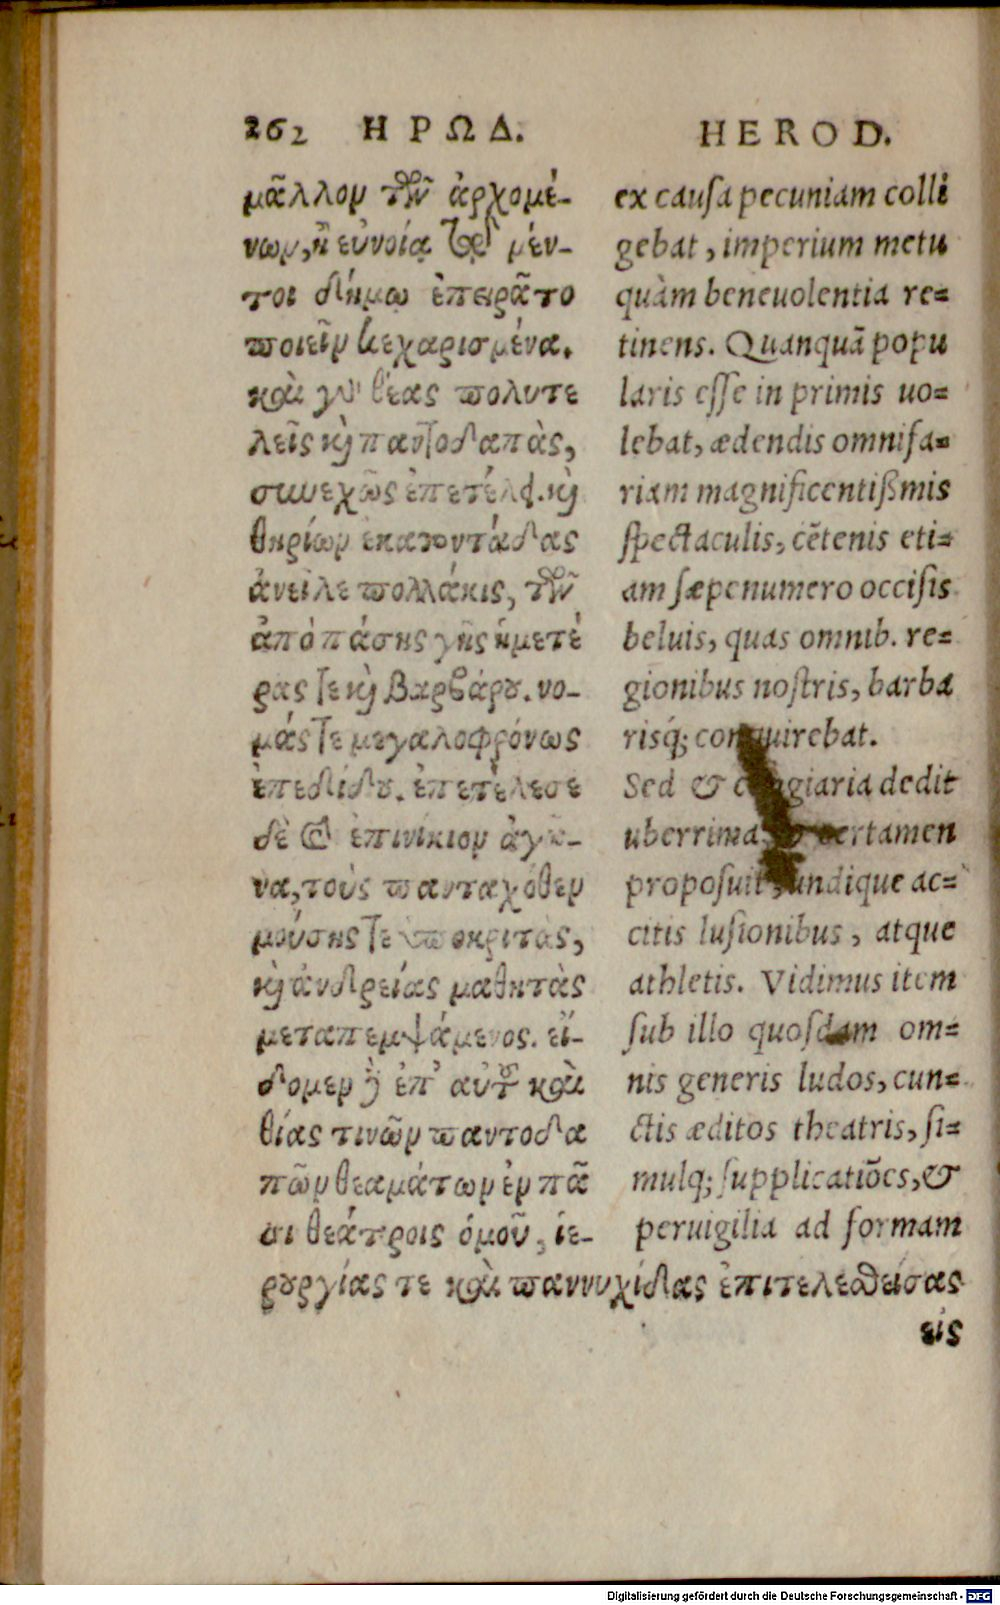 262 ΗΡΩΔ.
μᾶλλον τῶν ἀρχομέ-
νων, ἢ εὐνοίᾳ τῷ μέν-
τοι δήμῳ ἐπειρᾶτο
ποιεῖν κεχαρισμένα.
καὶ γὰρ θέας πολυτε
λεῖς καὶ παντοδαπὰς,
συνεχῶς ἐπετέλει. καὶ
θηρίων ἑκατοντάδας
ἀνεῖλε πολλάκις, τῶν
ἀπὸ πάσης γῆς ἡμετέ
ρας τε καὶ βαρβάρου. νο-
μάς τε μεγαλοφρόνως
ἐπεδίδου. ἐπετέλεσε
δὲ καὶ ἐπινίκιον ἀγῶ-
να, τοὺς πανταχόθεν
μούσης τε ὑποκριτὰς,
καὶ ἀνδρείας μαθητὰς
μεταπεμψάμενος. εἴ-
δομεν δὲ ἐπ' αὐτοῦ καὶ
θέας τινῶν παντοδα
πῶν θεαμάτων ἐν πᾶ
σι θεάτροις ὁμοῦ, ἱε-
ρουργίας τε καὶ παννυχίδας ἐπιτελεσθείσας
εἰς
HEROD.
ex causa pecuniam colli
gebat, imperium metu
quàm beneuolentia re=
tinens. Quanquã popu
laris esse in primis uo=
lebat, ædendis omnifa=
riam magnificentißmis
spectaculis, cẽtenis eti=
am sæpenumero occisis
beluis, quas omnib. re=
gionibus nostris, barba
risq́; conquirebat.
Sed & congiaria dedit
uberrima, & certamen
proposuit, undique ac=
citis lusionibus, atque
athletis. Vidimus item
sub illo quosdam om=
nis generis ludos, cun=
ctis æditos theatris, si=
mulq; supplicatiões, &
peruigilia ad formam
Digitalisierung gefördert durch die Deutsche Forschungsgemeinschaft - DFG